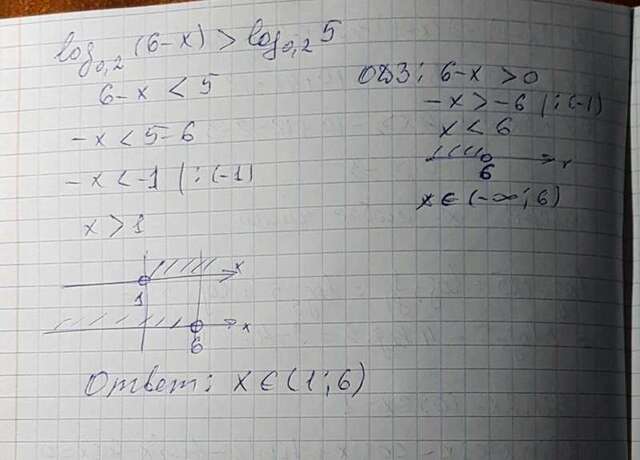 log₀,₂ (6-x) > log₀,₂ 5
6-x < 5
-x < 5-6
-x < -1 | :(-1)
x > 1
x
1
x
6
ОДЗ: 6-x > 0
-x > -6 | :(-1)
x < 6
x
6
x ∈ (-∞; 6)
Ответ: x ∈ (1; 6)